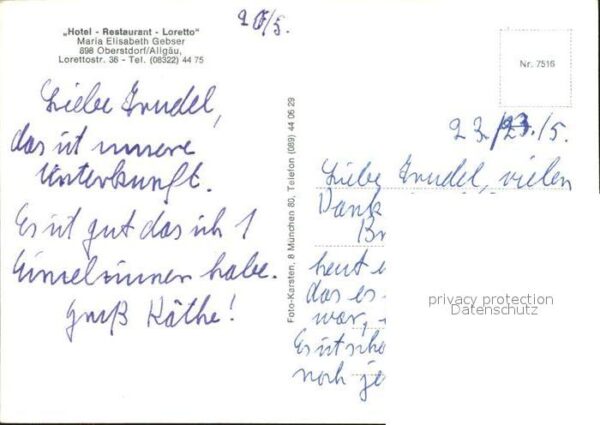 „Hotel - Restaurant - Loretto"
Maria Elisabeth Gebser
898 Oberstdorf/Allgäu,
Lorettostr. 36 - Tel. (08322) 44 75
20/5.
Liebe Trudel,
das ist unsere
Unterkunft.
Es ist gut das ich 1
Einzelzimmer habe.
Gruß Käthe!
Foto-Karsten, 8 München 80, Telefon (089) 44 06 29
Nr. 7516
23./5.
Liebe Trudel, vielen
Dank
heut
das es
war,
Es ist scho
noch je
privacy protection
Datenschutz